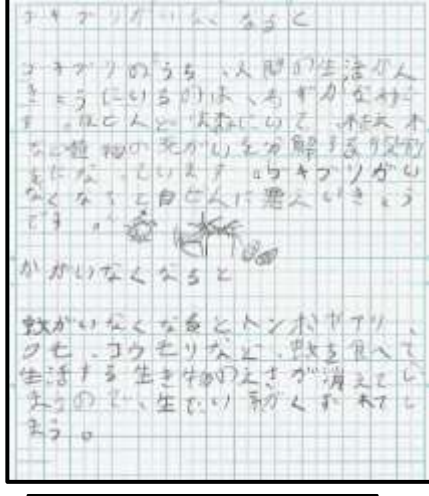 ゴキブリがいなくなると
ゴキブリのうち、人間の生活かん
きょうにいるのは、わずかな種
す。ほとんどは森にいて、
など植物の死がいを分解する役割
をになっています。ゴキブリがい
なくなると自ぜんに悪えいきょう
です。
かがいなくなると
蚊がいなくなるとトンボやアリ、
クモ、コウモリなど、蚊を食べて
生活する生き物のえさが消えてし
まうので、生たい系がくずれてし
まう。